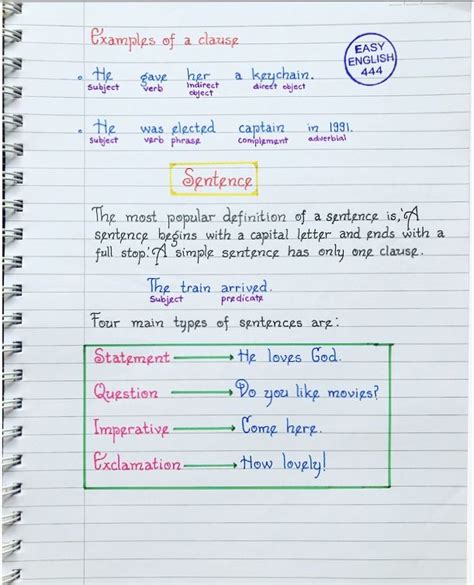 Examples of a clause
EASY
ENGLISH
444
He gave her a keychain.
subject verb indirect object direct object
He was elected captain in 1991.
subject verb phrase complement adverbial
Sentence
The most popular definition of a sentence is, 'A
sentence begins with a capital letter and ends with a
full stop.' A simple sentence has only one clause.
The train arrived.
Subject predicate
Four main types of sentences are:
Statement → He loves God.
Question → Do you like movies?
Imperative → Come here.
Exclamation → How lovely!